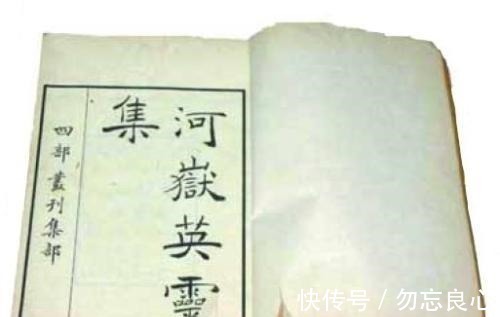 河嶽英靈
集
四部叢刊集部
快传号／勿忘良心